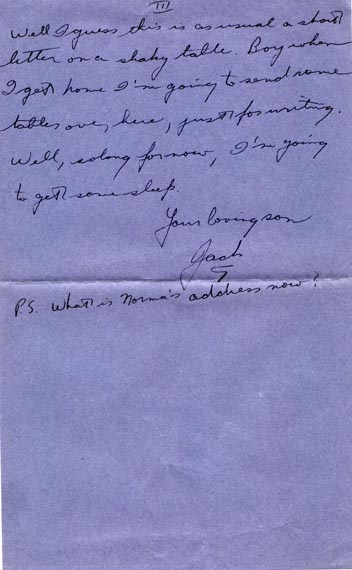 III
Well I guess this is as usual a short
letter on a shaky table. Boy when
I get home I'm going to send some
tables over here, just for writing.
Well, so long for now, I'm going
to get some sleep.
Your loving son
Jack
P.S. What is Norma's address now?